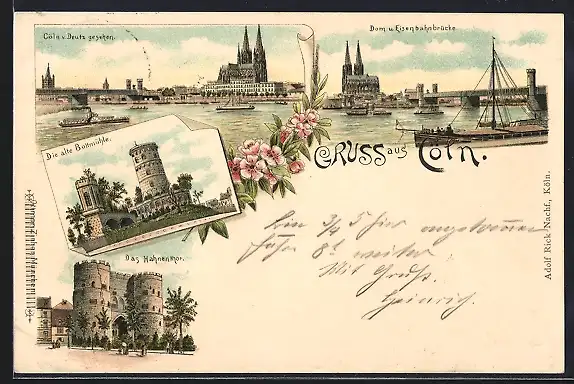 Cöln v. Deutz gesehen.
Dom. u. Eisenbahnbrücke.
Die alte Bottmühle.
GRUSS aus Cöln.
Das Hahnenthor.
Bin 3/5 hier angekommen
fahre 8⁵ weiter
Mit Gruß.
Heinrich.
Adolf Rick Nachf., Köln.